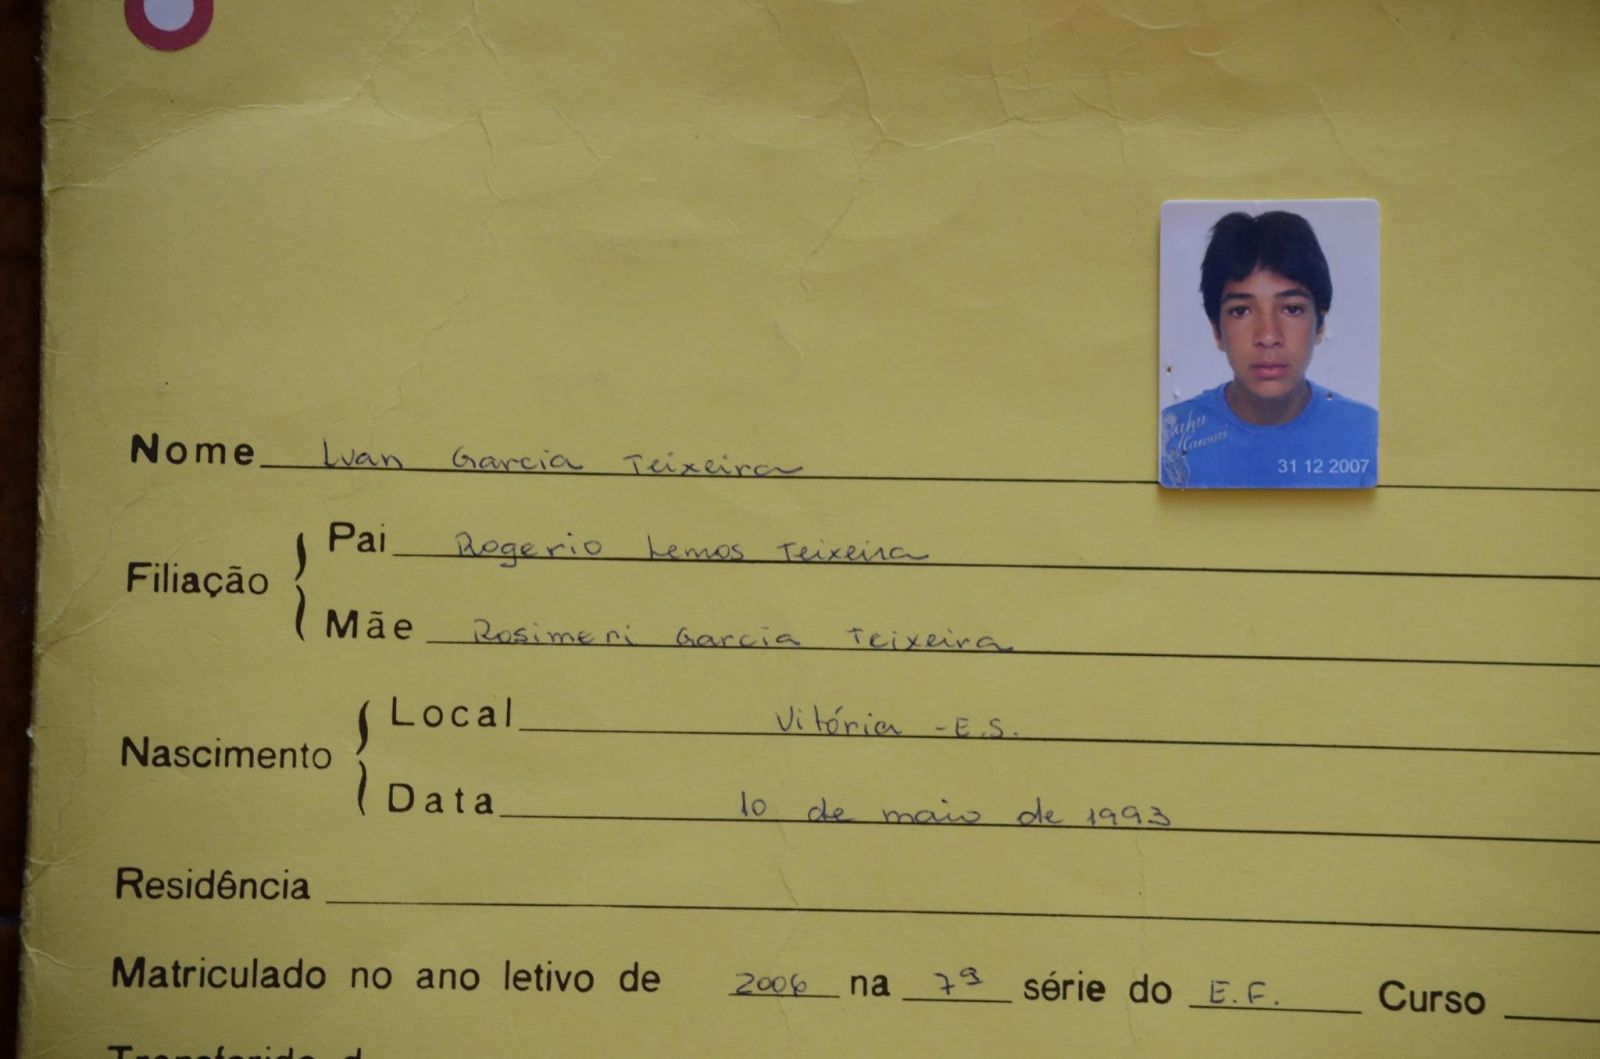 Nome Ivan Garcia Teixeira
Pai Rogerio Lemos Teixeira
Filiação
Mãe Rosimeri Garcia Teixeira
Local Vitória - E.S.
Nascimento
Data 10 de maio de 1993
Residência
Matriculado no ano letivo de 2006 na 7ª série do E.F. Curso
Transferido d
Oahu
Hawaii
31 12 2007